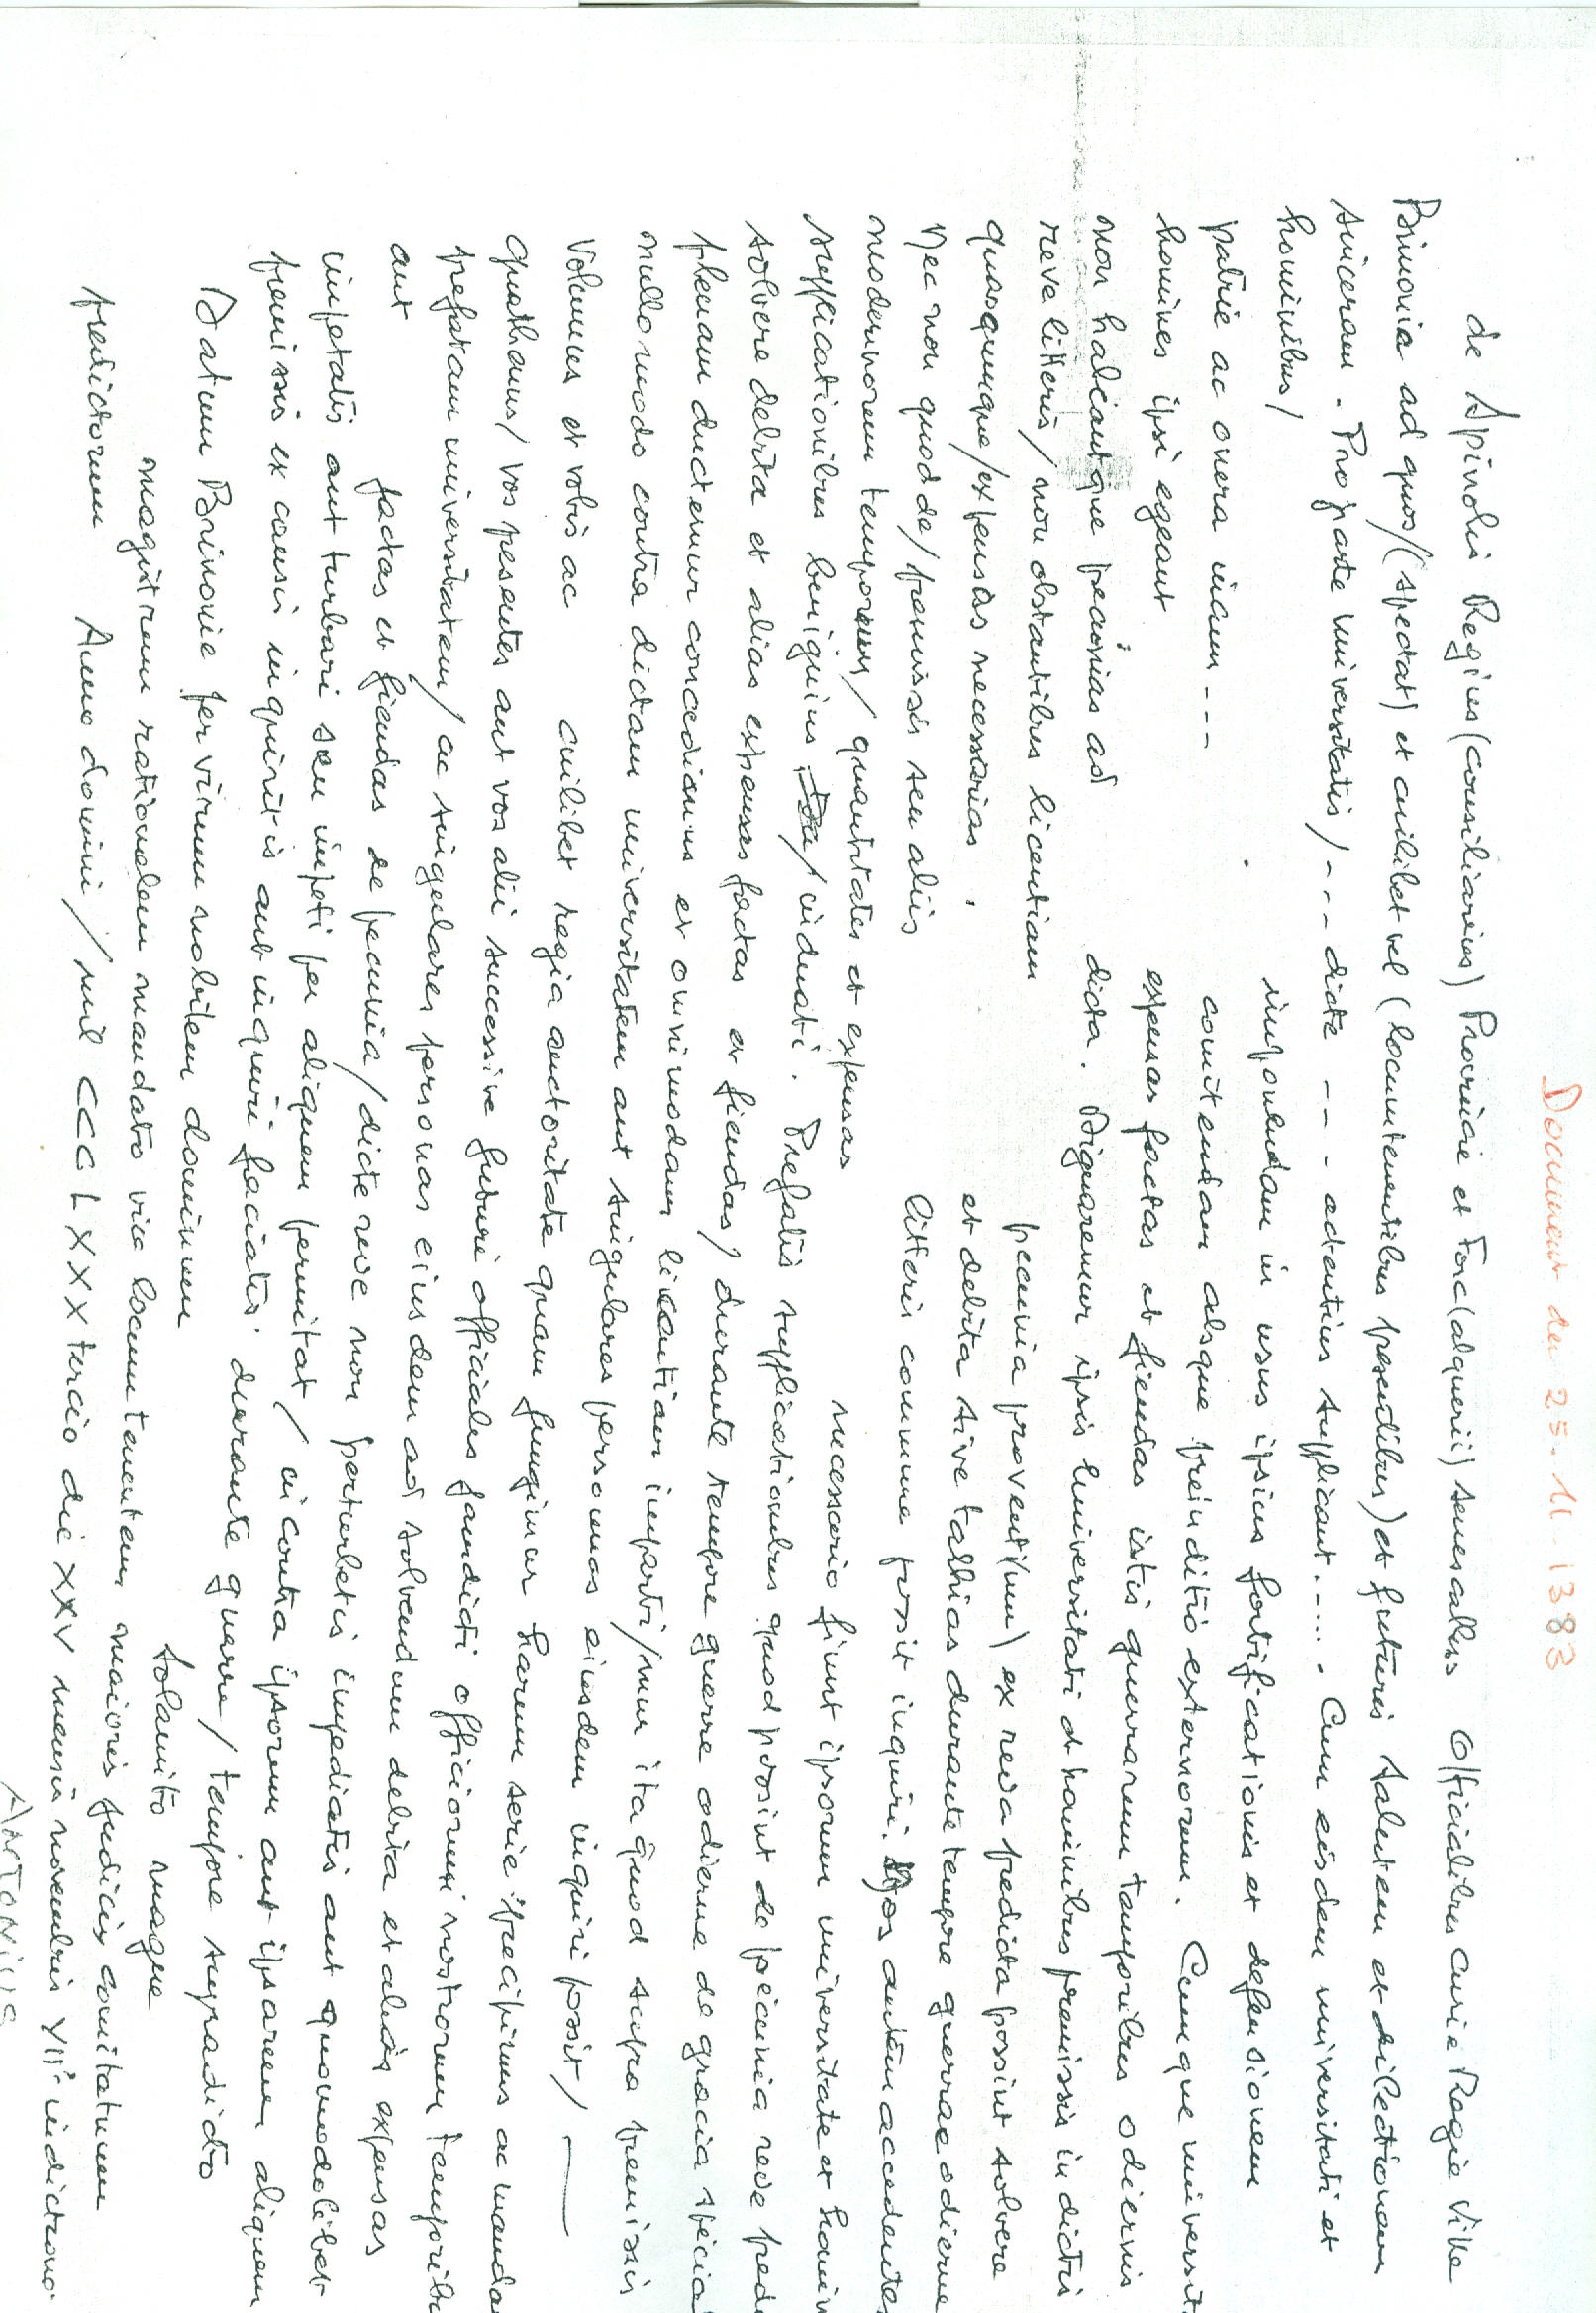 Document du 25.11.1383
de Spinolis Regius (consiliarius) Provincie et Forc(alquerii) senescallus Officialibus Curie Regie Ville
Brinonia ad quos/(spectat) et cuilibet vel (locumtenentibus presentibus) et futuris salutem et dilectionem
sinceram. Pro parte universitatis/ --- dicte --- attentius supplicant..... Cum eisdem universitati et
hominibus/ imponendam in usus ipsius fortificationis et defensionem
patrie ac onera incum --- comitendam absque preiuditio externorum. Cumque universit
homines ipsi egeant expensas factas et fiendas istis guerrarum temporibus odiernis
non habeantque pecunias ad dicta. Dignaremur ipsis universitati et hominibus premissis in dictis
reve litteris/ non obstantibus licentiam pecunia provent(um) ex reva predicta possint solvere
quasqumque/expensas necessarias. et debita sive tallias durante tempore guerrae odierne
Nec non quod de/premissis seu aliis litteris comune possit inquiri. Nos autem accedentes
modernorum temporum/ quantitates et expensas necessario fiunt ipsorum universitate et homin
supplicationibus benignius /inclinati. Prefatis supplicationibus quod possint de pecunia reve pred
solvere debita et alias expensas factas et fiendas/ durante tempore guerre odierne de gracia special
plenam ducternur concedimus et omnimodam licentiam imparti/mur ita quod supra premissis
nullo modo contra dictam universitatem aut singulares personas eiusdem inquiri possit/ ——
Volumus et vobis ac cuilibet regia auctoritate quam fungimur harum serie /precipimus ac manda
quathenus/ vos presentes aut vos alii successive futuri officiales jamdicti officiorum nostrorum temporibu
prefatam universitatem/ ac singulares personas eiusdem ad solvendum debita et aliàs expensas
aut factas et fiendas de pecunia/ dicte reve non perturbetis impediatis aut quomodolibet
impetatis aut turbari seu impeti per aliquem permitat/ in contra ipsorum aut ipsarum aliquem
premissis ex causis inquiritis aut inquiri faciatis. durante guerre/ tempore supradicto
Datum Brinonie per virum nobilem dominum Solamito magne
magistrum rationalem mandato vice locum tenentem maioris judicis comitatuum
predictorum Anno domini/mil CCC LXXX tercio die XXV mensis novembris VII indictione.
Antonius